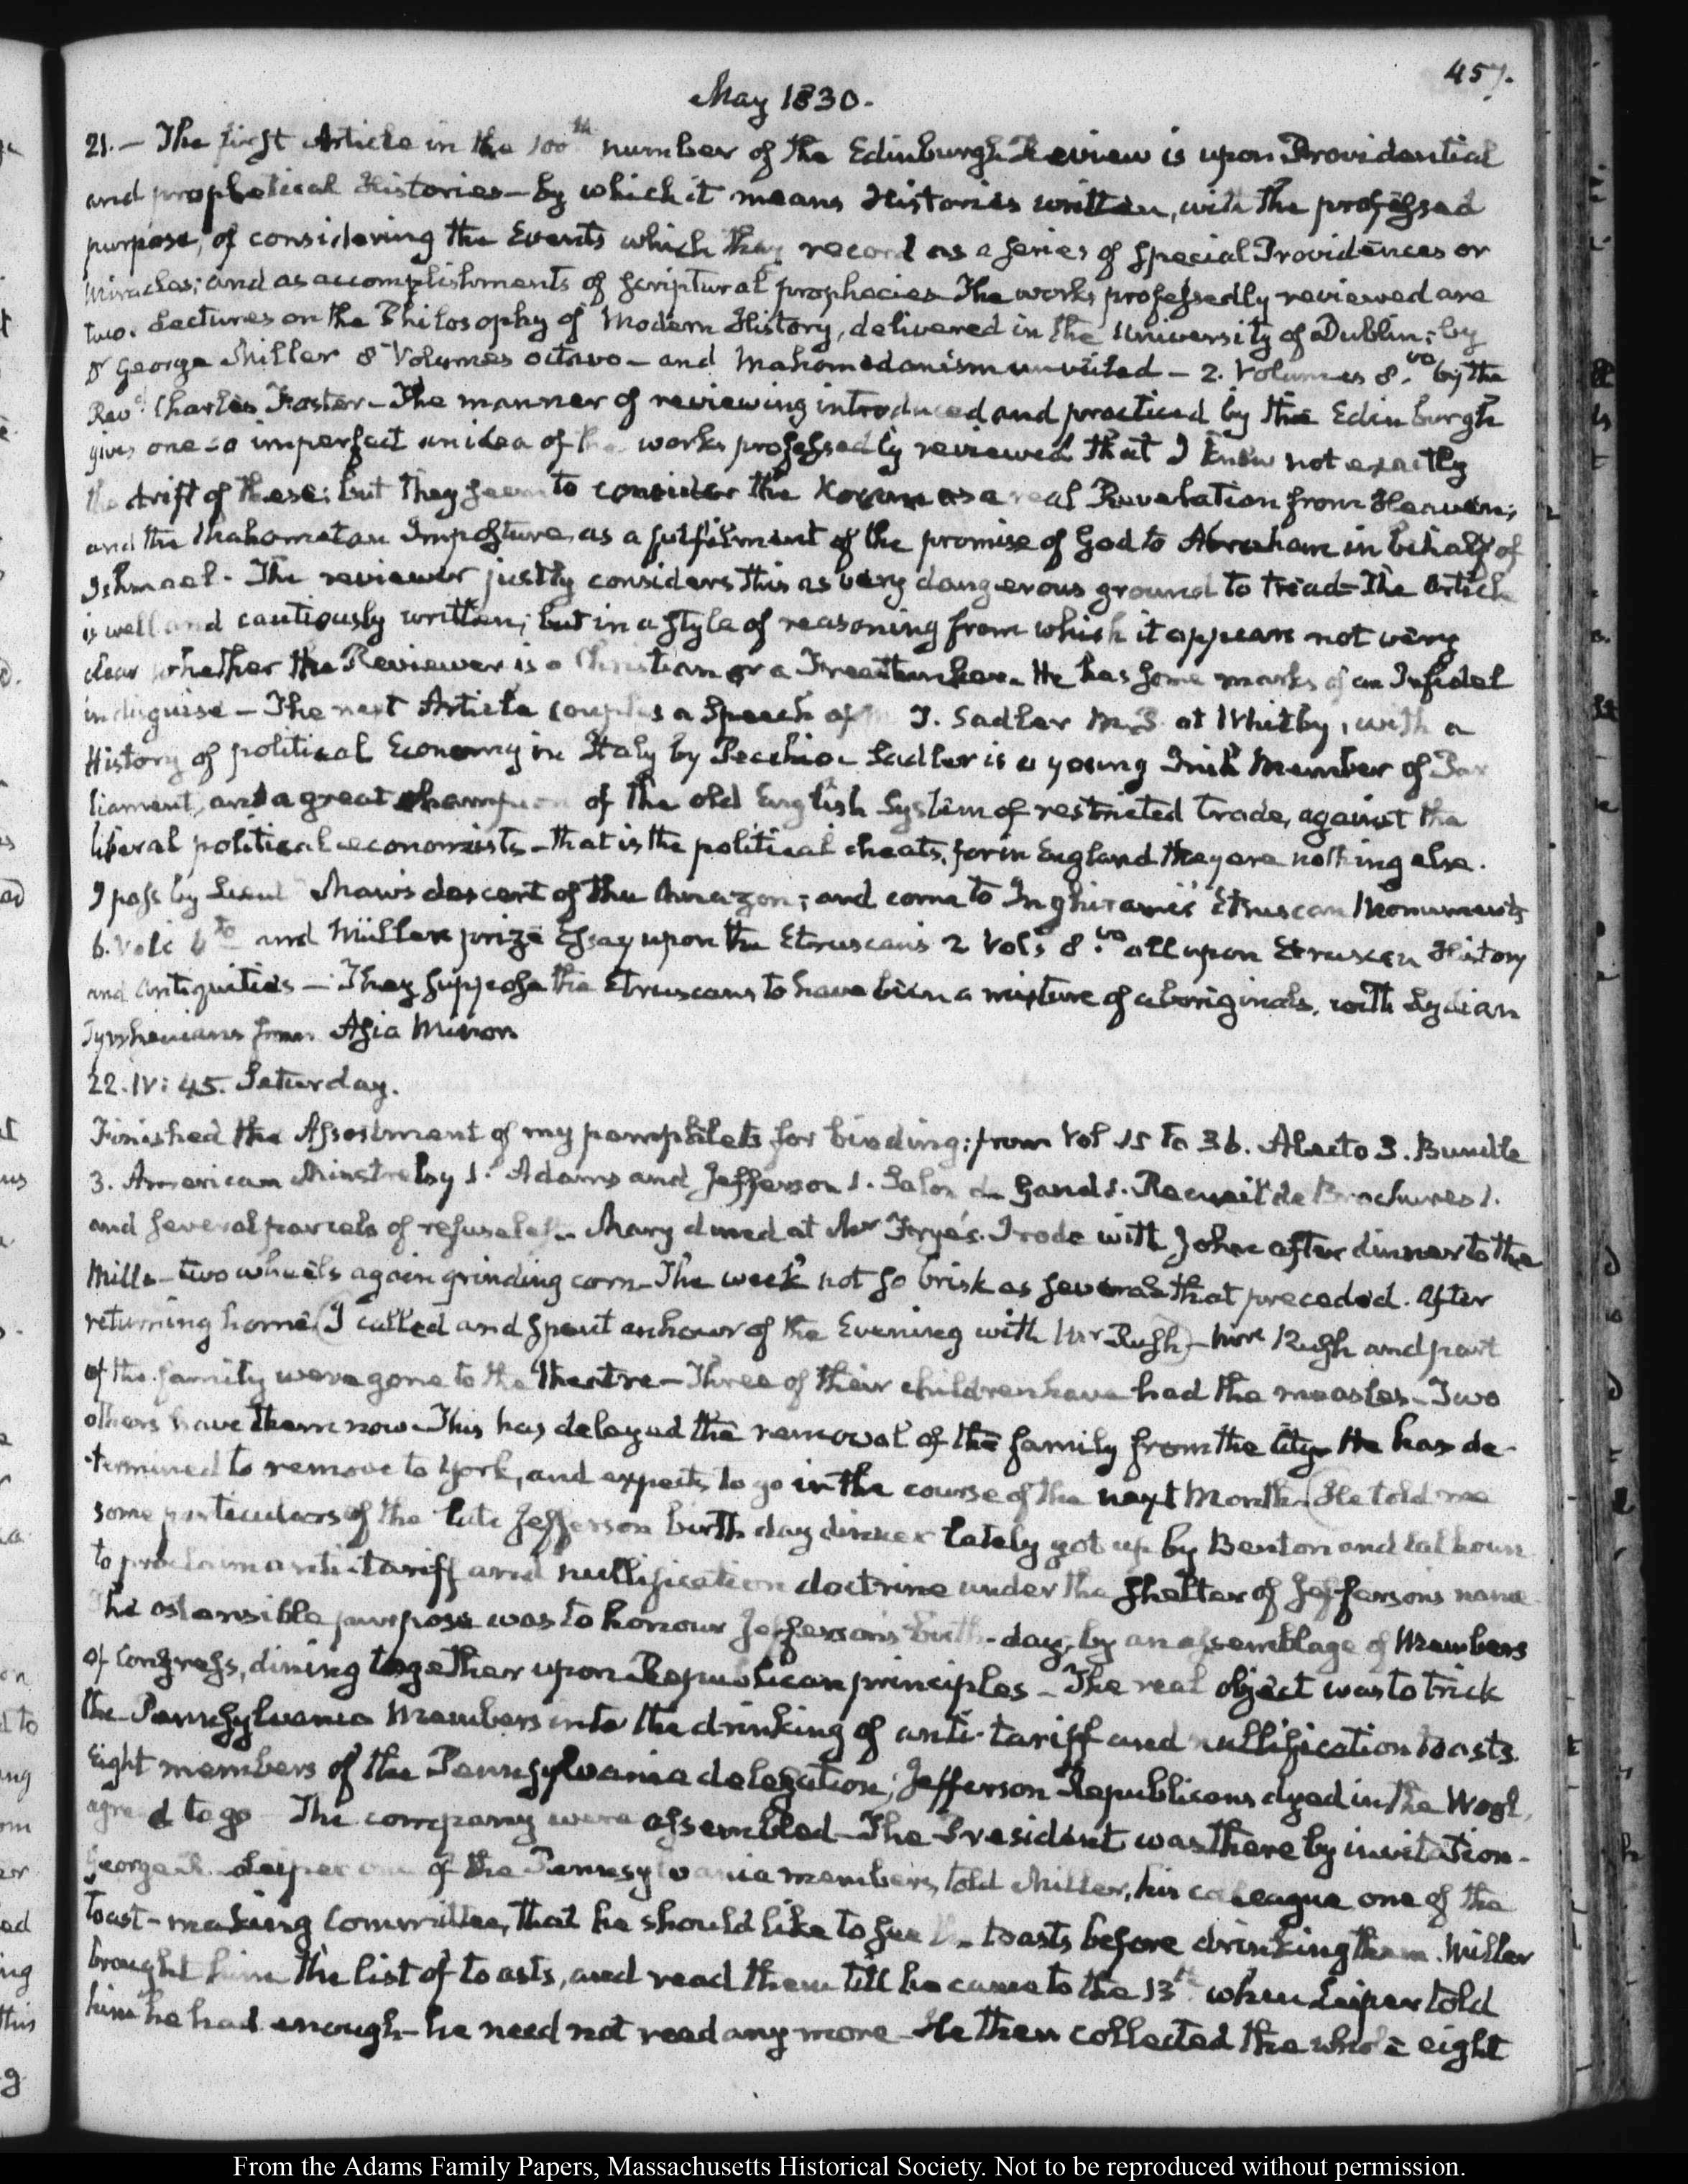 457.
May 1830.
21.— The first Article in the 100th number of the Edinburgh Review is upon Providential
and prophetical Histories— by which it means Histories written, with the professed
purpose, of considering the Events which they record as a series of special Providences or
miracles; and as accomplishments of scriptural prophecies The works professedly reviewed are
two. Lectures on the Philosophy of Modern History, delivered in the University of Dublin; by
Dr George Miller 8 Volumes octavo— and Mahomedanism unveiled— 2. Volumes 8.vo by the
Revd. Charles Forster— The manner of reviewing introduced and practiced by the Edinburgh
gives one so imperfect an idea of the works professedly reviewed that I know not exactly
the drift of these; but they seem to consider the Koran as a real Revelation from Heaven;
and the Mahometan Imposture, as a fulfilment of the promise of God to Abraham in behalf of
Ishmael. The reviewer justly considers this as very dangerous ground to tread— The Article
is well and cautiously written; but in a style of reasoning from which it appears not very
clear whether the Reviewer is a Christian or a Freethinker. He has some marks of an Infidel
in disguise— The next Article couples a Speech of T. Sadler M.P. at Whitby, with a
History of political Economy in Italy by Pecchio— Sadler is a young Irish Member of Par
liament, and a great champion of the old English System of restricted trade, against the
liberal political economists— that is the political cheats, for in England they are nothing else.
I pass by Lieut Maw's descent of the Amazon; and come to Inghirami's Etruscan Monuments
6. Vols 4to and Müllers prize Essay upon the Etruscans 2 Vols 8.vo all upon Etruscan History
and Antiquities— They suppose the Etruscans to have been a mixture of aboriginals, with Lydian
Tyrrhenians from Asia Minor
22. IV: 45. Saturday.
Finished the Assortment of my pamphlets for binding: from Vol 15 to 36. Alecto 3. Bundle
3. American Minstrelsy 1. Adams and Jefferson 1. Salon de Gand 1. Recueil de Brochures 1.
and several parcels of refuse left— Mary dined at Mr Frye's. I rode with John after dinner to the
Mills— two wheels again grinding corn— The week not so brisk as several that preceded. After
returning home (I called and spent an hour of the Evening with Mr Rush)— Mrs Rush and part
of the family were gone to the Theatre— Three of their children have had the measles— Two
others have them now— This has delayed the removal of the family from the City— He has de-
termined to remove to York, and expects to go in the course of the next Month. (He told me
some particulars of the late Jefferson birth day dinner lately got up by Benton and Calhoun
to proclaim anti-tariff and nullification doctrine under the shelter of Jeffersons name
The ostensible purpose was to honour Jefferson's birth-day, by an assemblage of Members
of Congress, dining together upon Republican principles— The real object was to trick
the Pennsylvania Members into the drinking of anti-tariff and nullification toasts.
Eight members of the Pennsylvania delegation; Jefferson Republicans dyed in the Wool,
agreed to go— The company were assembled— The President was there by invitation—
George Leiper one of the Pennsylvania members, told Miller, his colleague one of the
toast-making Committee, that he should like to see the toasts before drinking them. Miller
brought him the list of toasts, and read them till he came to the 13th when Leiper told
him he had enough— he need not read any more— He then collected the whole eight
From the Adams Family Papers, Massachusetts Historical Society. Not to be reproduced without permission.